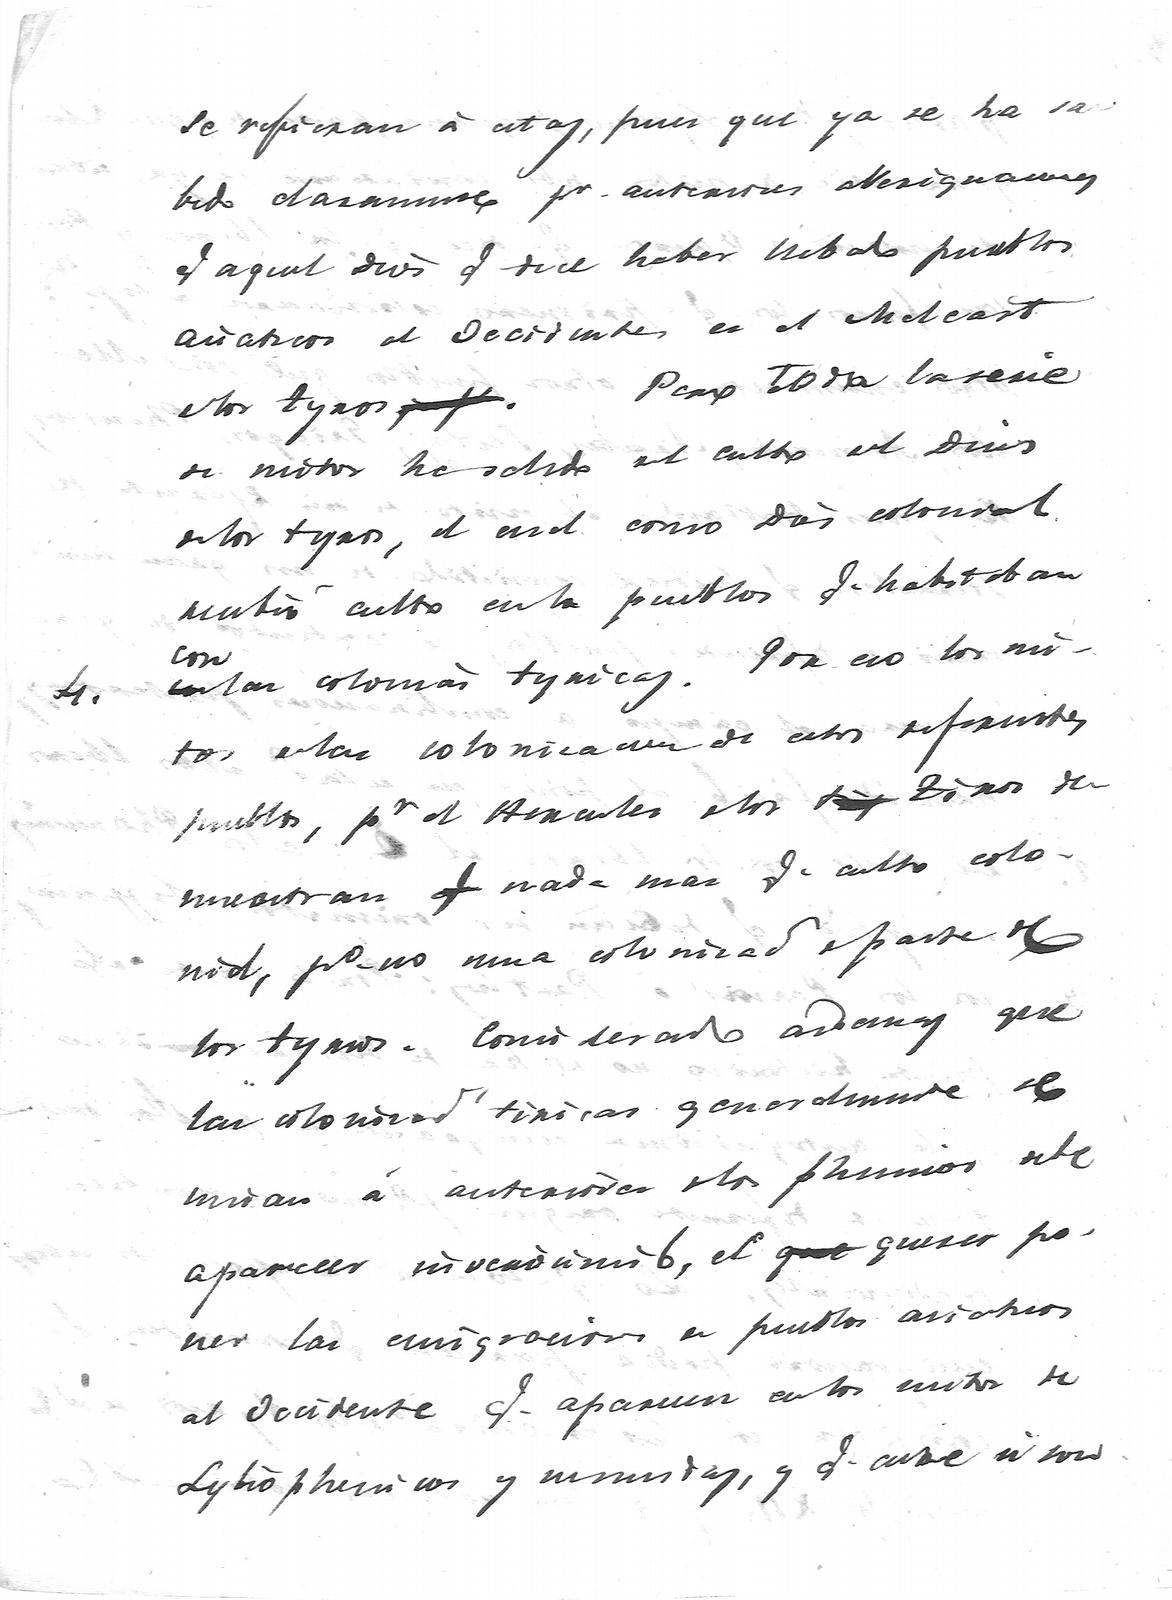 se refieran á estas, pues que ya se ha sa-
bido claramente pr anteriores averiguaciones
q aquel Dios q dice haber llebado pueblos
asiaticos al Occidente es el Melcart
de los tyrios. Pero toda la serie
de mitos ha salido del culto del Dios
de los tyrios, el cual como Dios colonial
recibió culto en los pueblos q habitaban
con
4. las colonias tyricas. Por eso los mi-
tos de las colonizacion de estos diferentes
pueblos, pr el Hercules de los Tirios de-
muestran nada mas q culto colo-
nial, po no una colonizad de parte de
los tyrios. Considerando ademas que
las colonizad tiricas generalmente
á anteriores de los phenicios debe
aparecer inverosimil, el querer po-
ner las emigraciones de pueblos asiaticos
al Occidente q aparecen en los mitos de
Lybiophenicos y numidas, y q entre si son